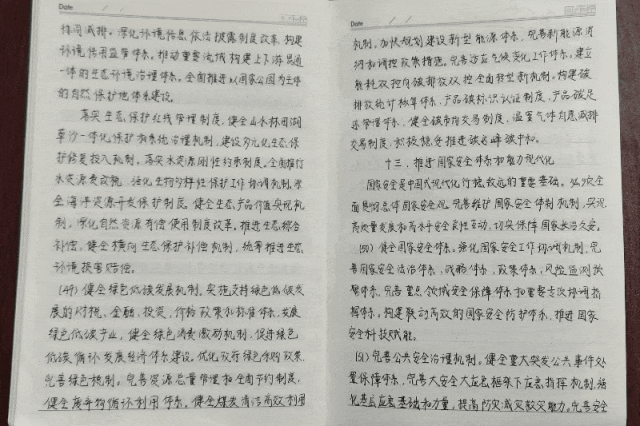 Date
协同减排。深化环境信息依法披露制度改革，构建
环境信用监管体系。推动重要流域构建上下游贯通
一体的生态环境治理体系。全面推进以国家公园为主体
的自然保护地体系建设。
落实生态保护红线管理制度，健全山水林田湖
草沙一体化保护和系统治理机制，建设多元化生态保
护修复投入机制。落实水资源刚性约束制度，全面推行
水资源费改税。强化生物多样性保护工作协调机制。健
全海洋资源开发保护制度。健全生态产品价值实现机
制。深化自然资源有偿使用制度改革。推进生态综合
补偿，健全横向生态保护补偿机制，统筹推进生态
环境损害赔偿。
(49) 健全绿色低碳发展机制。实施支持绿色低碳发
展的财税、金融、投资、价格政策和标准体系，发展
绿色低碳产业，健全绿色消费激励机制，促进绿色
低碳循环发展经济体系建设。优化政府绿色采购政策，
完善绿色税制。完善资源总量管理和全面节约制度，
健全废弃物循环利用体系。健全煤炭清洁高效利用
Date
机制。加快规划建设新型能源体系，完善新能源消
纳和调控政策措施。完善适应气候变化工作体系。建立
能耗双控向碳排放双控全面转型新机制。构建碳
排放统计核算体系、产品碳标识认证制度、产品碳足
迹管理体系，健全碳市场交易制度、温室气体自愿减排
交易制度，积极稳妥推进碳达峰碳中和。
十三、推进国家安全体系和能力现代化
国家安全是中国式现代化行稳致远的重要基础。必须全
面贯彻总体国家安全观，完善维护国家安全体制机制，实现
高质量发展和高水平安全良性互动，切实保障国家长治久安。
(50) 健全国家安全体系。强化国家安全工作协调机制，完
善国家安全法治体系、战略体系、政策体系、风险监测预
警体系，完善重点领域安全保障体系和重要专项协调指
挥体系。构建联动高效的国家安全防护体系，推进国家
安全科技赋能。
(51) 完善公共安全治理机制。健全重大突发公共事件处
置保障体系，完善大安全大应急框架下应急指挥机制，强
化基层应急基础和力量，提高防灾减灾救灾能力。完善安全